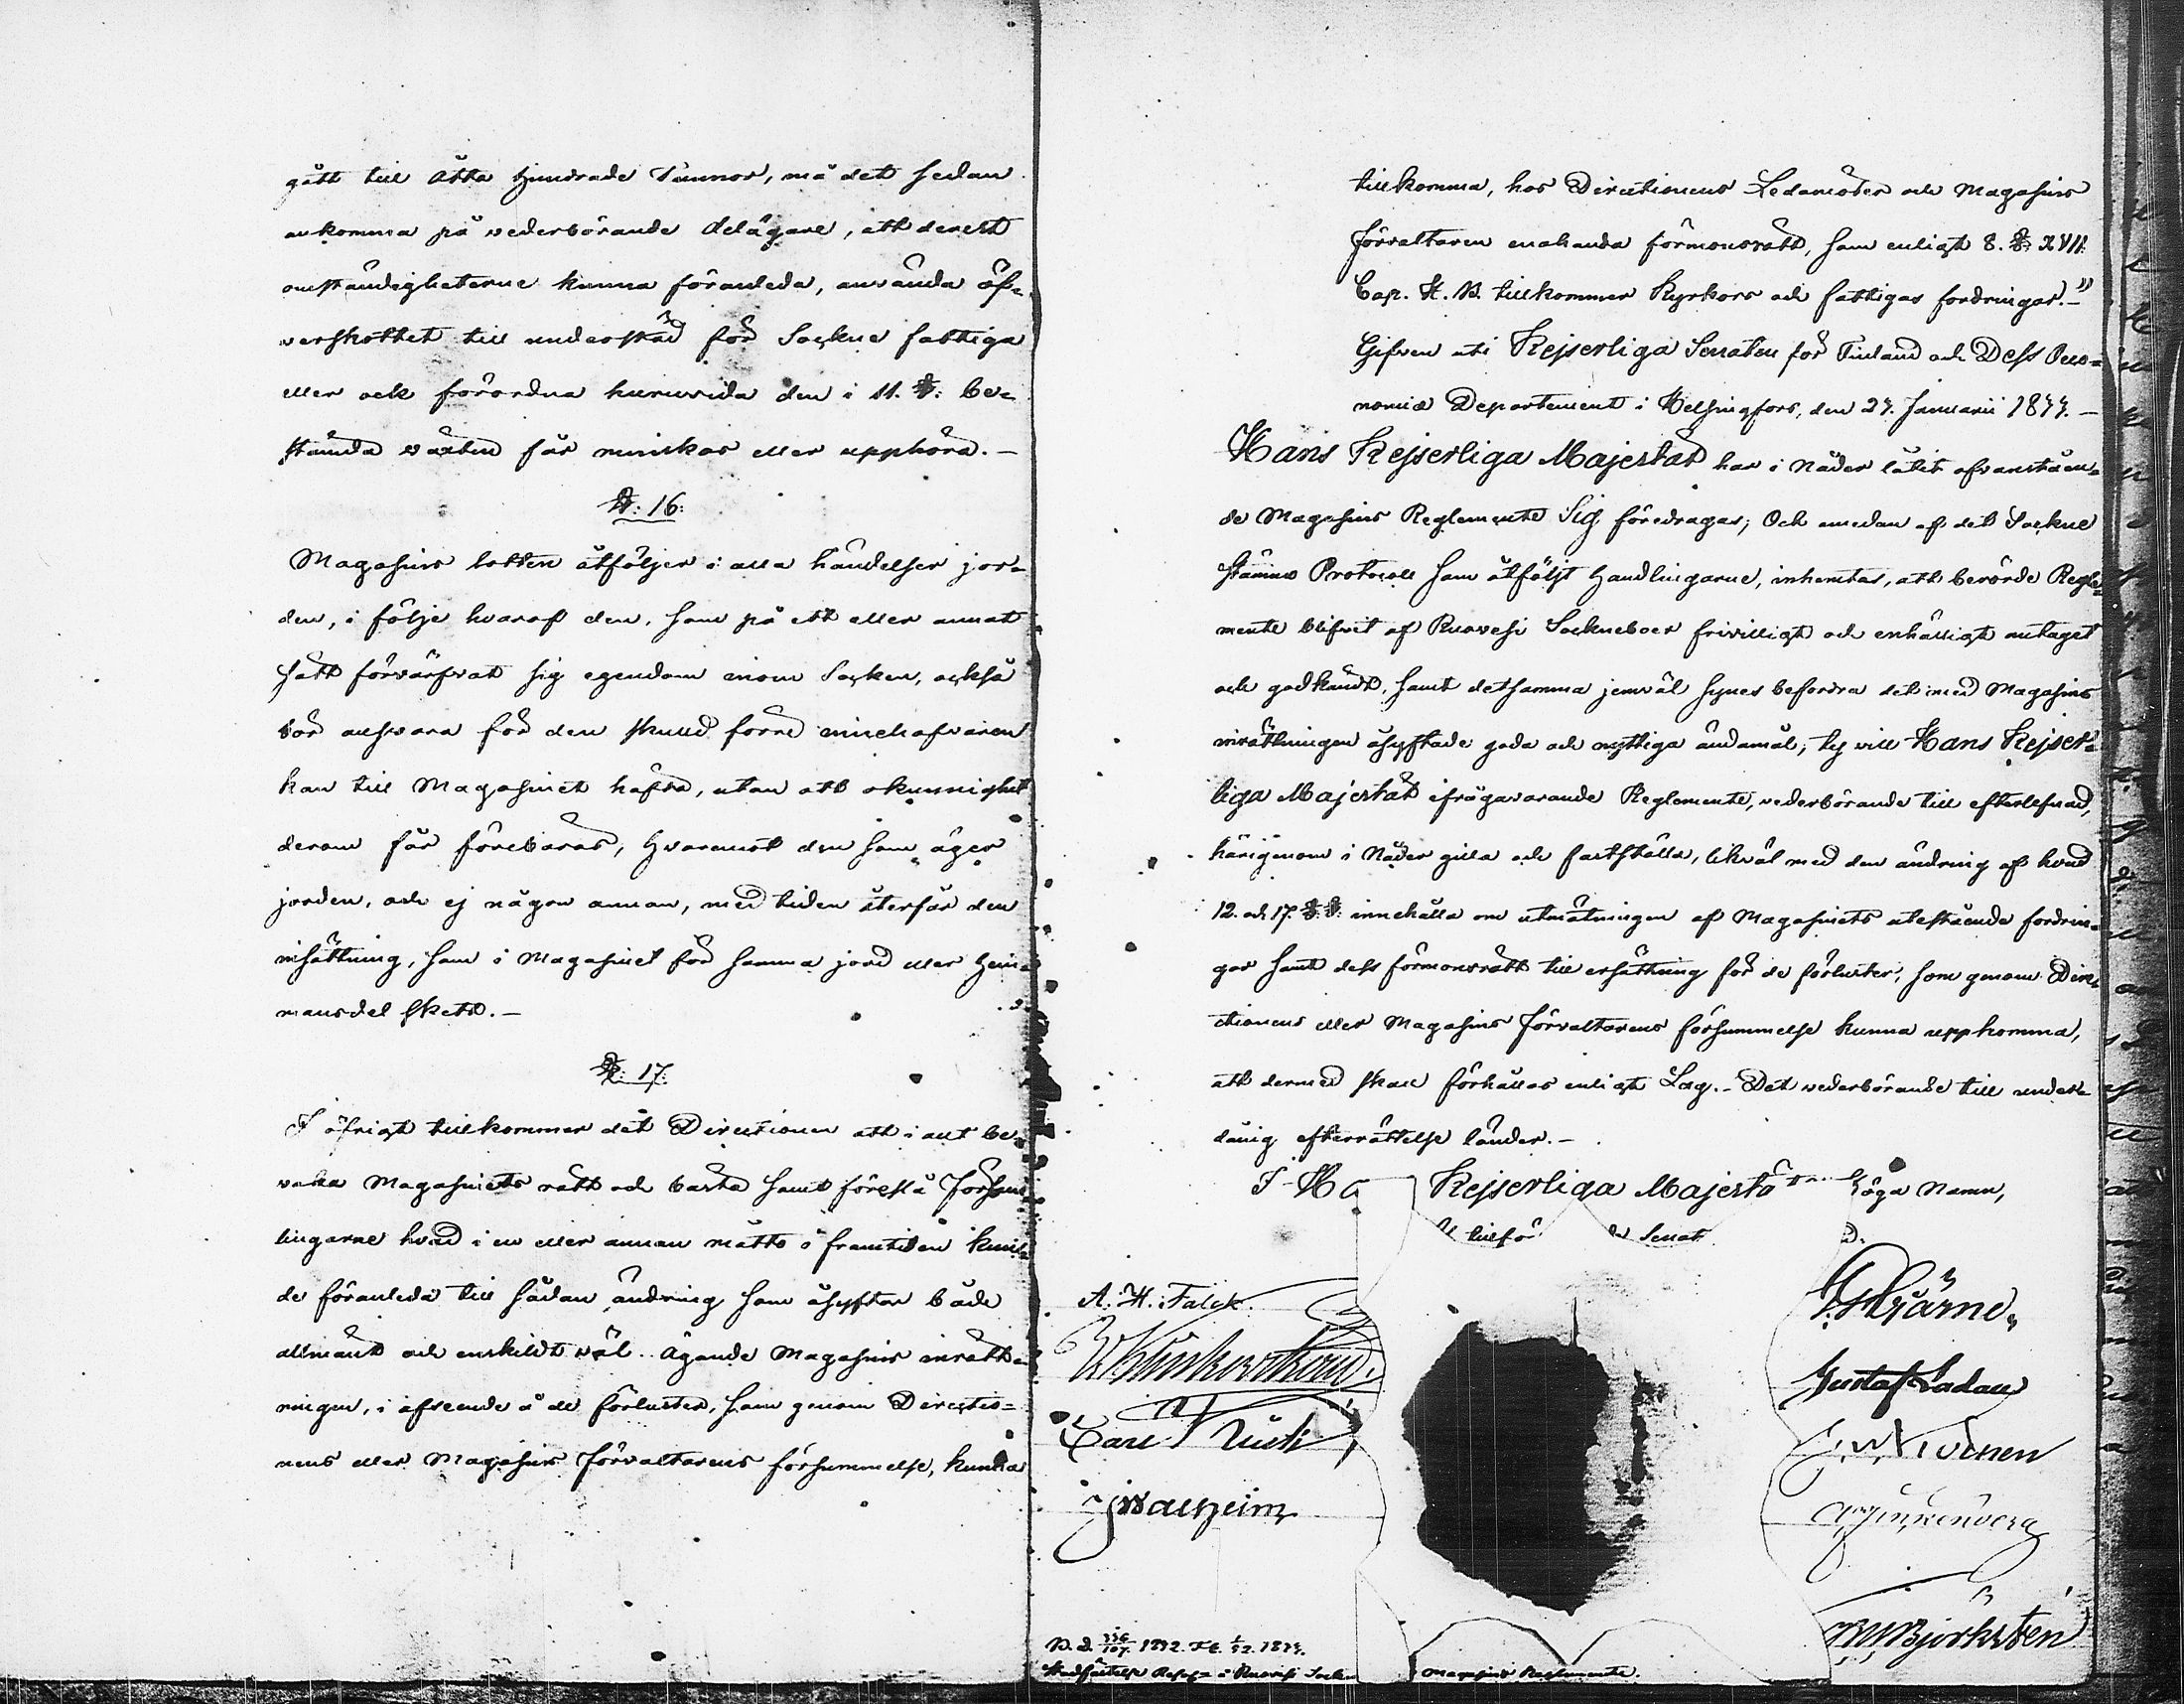 gått till Åtta Hundrade Tunnor, må det sedan
ankomma på vederbörande delägare, att derest
omständigheterne kunna föranleda, använda öf-
verskottet till understöd för Sockne fattiga
eller ock förordna huruvida den i 11. §: be-
stämda växten får minskas eller upphöra. -
§: 16:
Magasins lotten åtföljer i alla händelser jor-
den, i följe hvaraf den, som på ett eller annat
sätt förvärfvat sig egendom inom Socken, också
bör ansvara för den skuld förre innehafvaren
kan till Magasinet häfta, utan att okunnighet
derom får förebäras; Hvaremot den som äger
jorden, och ej någon annan, med tiden återfår den
insättning, som i Magasinet för samma jord eller Hem-
mansdel skett. -
§: 17:
I öfrigt tillkommer det Directionen att i allt be-
vaka Magasinets rätt och bästa samt föreslå Försam-
lingarne hvad i en eller annan måtto i framtiden kun-
de föranleda till sådan ändring som åsyftar både
allmänt och enskildt väl. Ägande Magasins inrätt-
ningen, i afseende å de förluster, som genom Directio-
nens eller Magasins förvaltarens försummelse, kunna
tillkomma, hos Directionens Ledamöter och Magasins
förvaltaren enahanda förmonsrätt, som enligt 8. §: XVII.
Cap. H. B. tillkommer Kyrkors och fattigas fordringar. -"
Gifven uti Kejserliga Senaten för Finland och Dess Oeco-
nomie Departement i Helsingfors, den 27. Januarii 1844. -
Hans Kejserliga Majestät har i Nåder låtit ofvanståen-
de Magasins Reglemente Sig föredragas; Och emedan af det Sockne
Stämmo Protocoll som åtföljt Handlingarne, inhemtas, att berörde Regle-
mente blifvit af Ruovesi Sockneboer frivilligt och enhälligt antaget
och godkändt, samt detsamma jemväl synes befordra det med Magasins
inrättningen åsyftade goda och nyttiga ändamål; ty vill Hans Kejser-
liga Majestät ifrågavarande Reglemente, vederbörande till efterlefnad,
härigenom i Nåder gilla och fastställa, likväl med den ändring af hvad
12. och 17. §.§. innehålla om utmätningen af Magasinets utestående fordrin-
gar samt dess förmonsrätt till ersättning för de förluster, som genom Dire-
ctionens eller Magasins förvaltarens försummelse kunna uppkomma,
att dermed skall förhållas enligt Lag. - Det vederbörande till under-
dånig efterrättelse länder. -
I Ha Kejserliga Majestä öga Namn,
tillfö Senat
A. H. Falck.
Gustaf Ladau
Björkstén
1842. 1844.
Stadfästelse å Ruovesi Socken Magasins Reglemente.